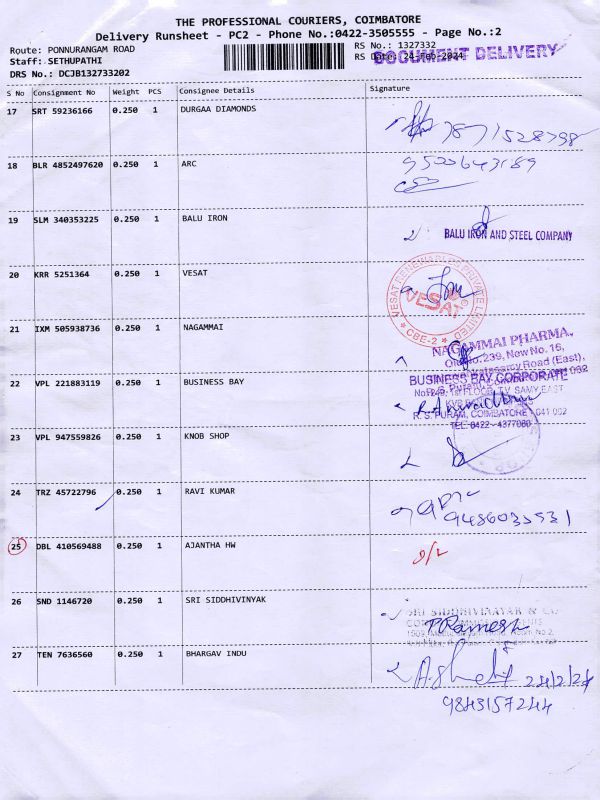 THE PROFESSIONAL COURIERS, COIMBATORE
Delivery Runsheet - PC2 - Phone No.:0422-3505555 - Page No.:2
Route: PONNURANGAM ROAD
RS No.: 1327332
Staff: SETHUPATHI
RS Date: 24-Feb-2024
DOCUMENT DELIVERY
DRS No.: DCJB132733202
S No Consignment No Weight PCS Consignee Details Signature
17 SRT 59236166 0.250 1 DURGAA DIAMONDS
7871528798
18 BLR 4852497620 0.250 1 ARC
19 SLM 340353225 0.250 1 BALU IRON
BALU IRON AND STEEL COMPANY
20 KRR 5251364 0.250 1 VESAT
VESAT
PRIVATE LIMITED
* CBE-2 *
21 IXM 505938736 0.250 1 NAGAMMAI
NAGAMMAI PHARMA
Old No. 239, New No. 16,
Road (East),
22 VPL 221883119 0.250 1 BUSINESS BAY
BUSINESS BAY CORPORATE
1st FLOOR, T.V. SAMY EAST
R. S. PURAM, COIMBATORE - 641 002
TEL: 0422 - 4377080
23 VPL 947559826 0.250 1 KNOB SHOP
24 TRZ 45722796 0.250 1 RAVI KUMAR
9486033531
25 DBL 410569488 0.250 1 AJANTHA HW
D/L
26 SND 1146720 0.250 1 SRI SIDDHIVINYAK
SRI SIDDHIVINAYAK & CO
P. Ramesh
27 TEN 7636560 0.250 1 BHARGAV INDU
24/2/24
9843157244